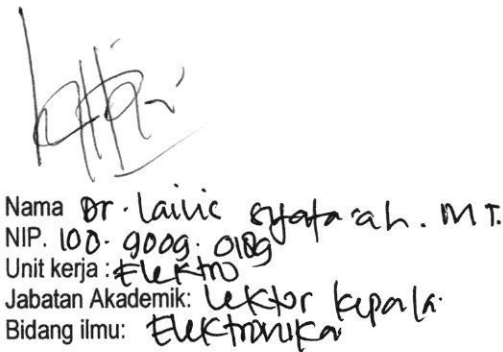 Nama Dr. Lailis Syafa'ah. MT.
NIP. 100. 9009. 0189
Unit kerja : Elektro
Jabatan Akademik: Lektor kepala
Bidang ilmu: Elektronika